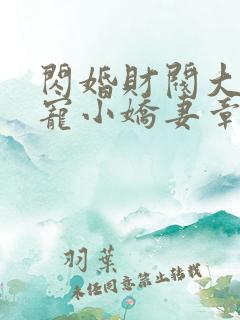 閃婚財閥大
寵小嬌妻章
羽葉
未經同意禁止轉載